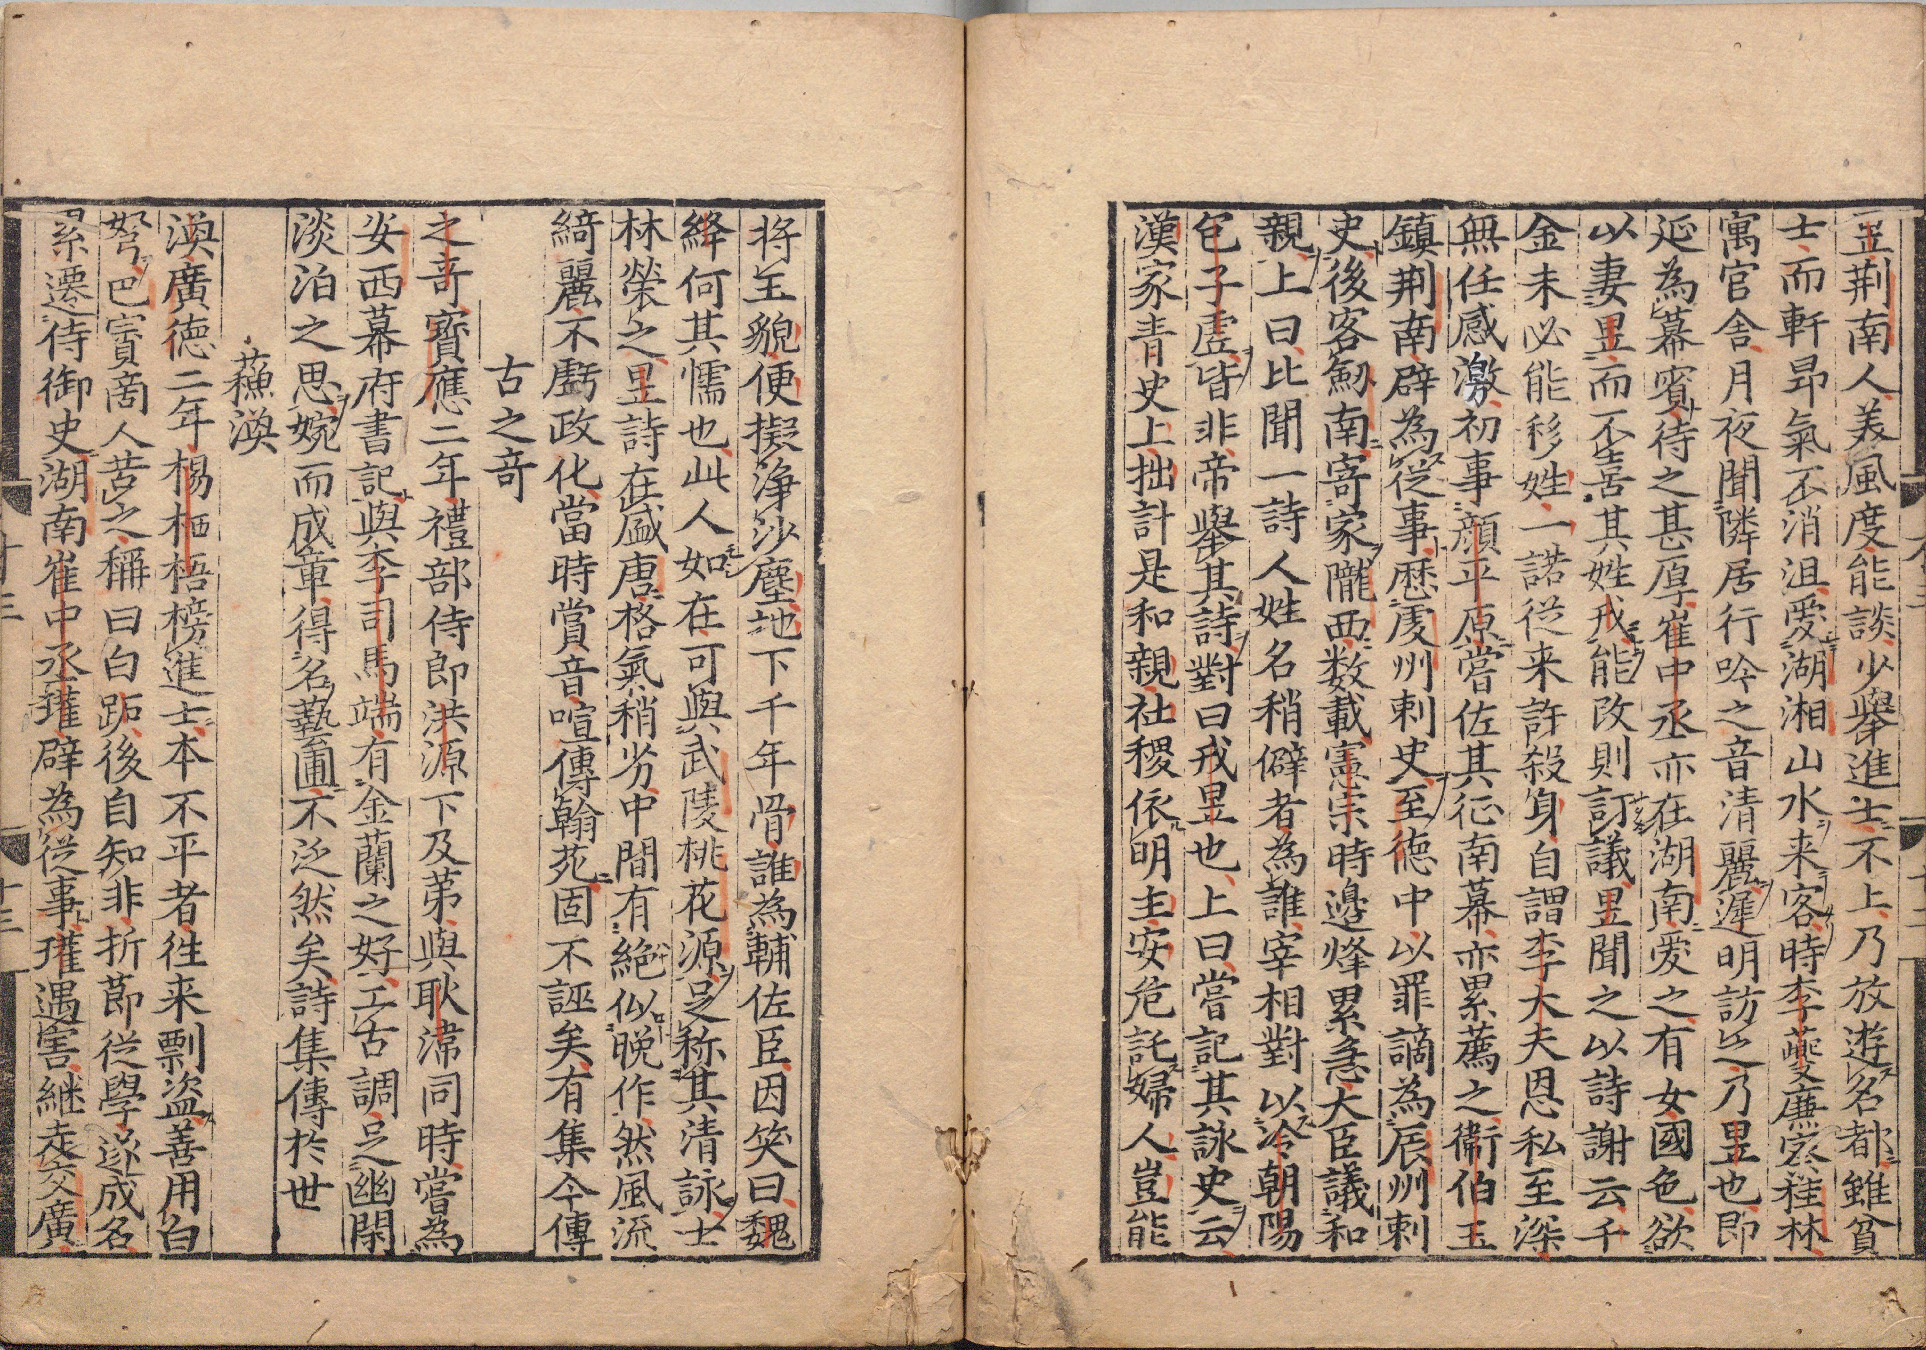 昱荆南人美風度能談少舉進士不上乃放遊名都雖貧
士而軒昂氣不消沮愛湖湘山水来客時李夔廉察桂林
寓官舎月夜聞隣居行吟之音清麗遲明訪之乃昱也即
延為幕賓待之甚厚崔中丞亦在湖南愛之有女國色欲
以妻昱而不喜其姓戎能改則訂議昱聞之以詩謝云千
金未必能移姓一諾從来許殺身自謂李大夫恩私至深
無任感激初事顔平原嘗佐其征南幕亦累薦之衛伯玉
鎮荆南辟為從事歷虔州刺史至德中以罪謫為辰州刺
史後客劔南寄家隴西数載憲宗時邊烽累急大臣議和
親上曰比聞一詩人姓名稍僻者為誰宰相對以冷朝陽
包子虛皆非帝舉其詩對曰戎昱也上曰嘗記其詠史云
漢家青史上拙計是和親社稷依明主安危託婦人豈能
将玉貌便擬淨沙塵地下千年骨誰為輔佐臣因笑曰魏
絳何其懦也此人如在可與武陵桃花源足称其清詠士
林榮之昱詩在盛唐格氣稍劣中間有絶似晚作然風流
綺麗不虧政化當時賞音喧傳翰苑固不誣矣有集今傳
古之竒
之竒寶應二年禮部侍郎洪源下及第與耿湋同時嘗為
安西幕府書記與李司馬端有金蘭之好工古調足幽閑
淡泊之思婉而成章得名藝圃不泛然矣詩集傳於世
蘓渙
渙廣德二年楊栖梧榜進士本不平者往来剽盗善用白
弩巴賨啇人苦之稱曰白跖後自知非折莭從學遂成名
累遷侍御史湖南崔中丞瓘辟為從事瓘遇害継走交廣